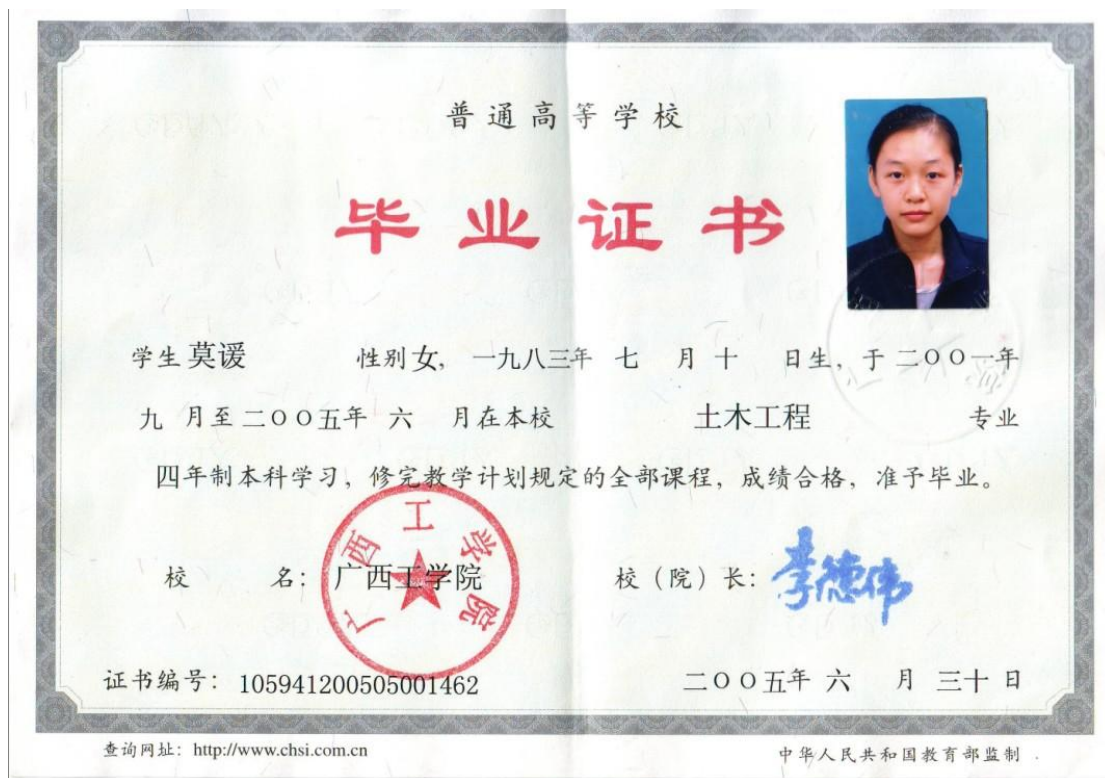 普通高等学校
毕业证书
学生 莫谖 性别 女, 一九八三年 七 月 十 日生, 于 二〇〇一年
九 月至 二〇〇五年 六 月在本校 土木工程 专业
四年制本科学习, 修完教学计划规定的全部课程, 成绩合格, 准予毕业。
广西工学院
校 名: 广西工学院 校（院）长: 李德伟
证书编号: 105941200505001462 二〇〇五年 六 月 三十 日
查询网址: http://www.chsi.com.cn 中华人民共和国教育部监制